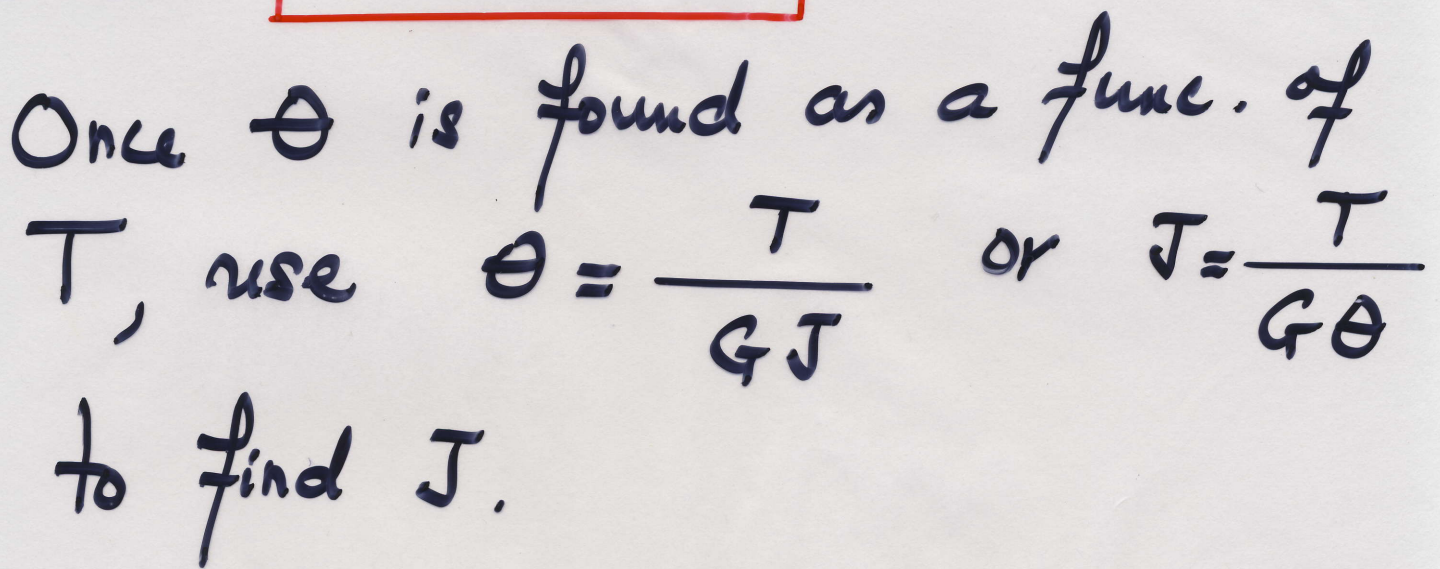 Once θ is found as a func. of
T, use θ = T/GJ or J = T/Gθ
to find J.